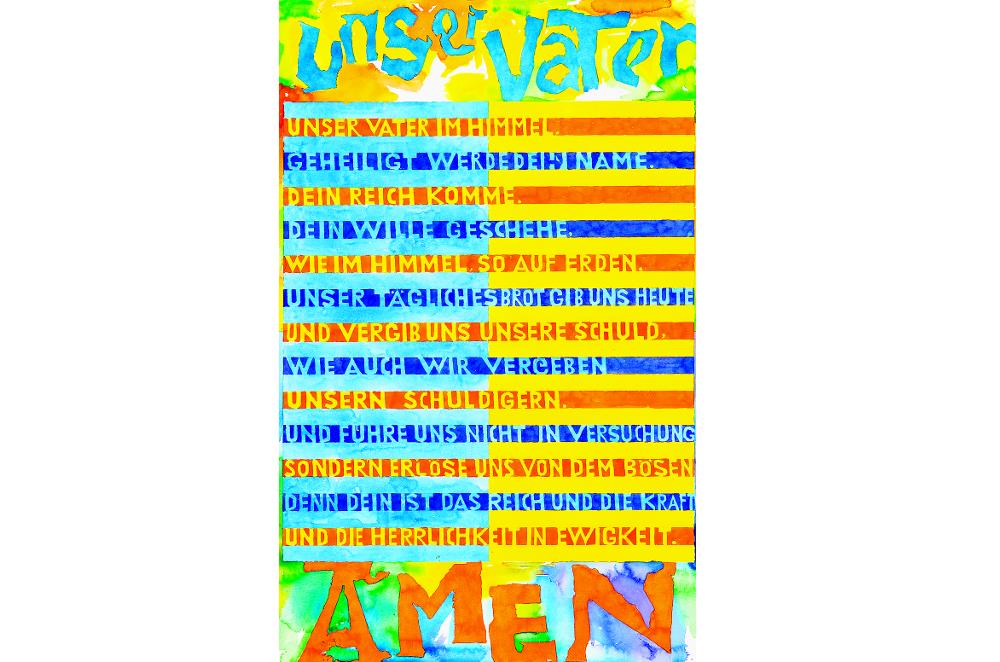 unser vater
UNSER VATER IM HIMMEL.
GEHEILIGT WERDE DEIN NAME.
DEIN REICH KOMME.
DEIN WILLE GESCHEHE.
WIE IM HIMMEL, SO AUF ERDEN.
UNSER TÄGLICHES BROT GIB UNS HEUTE
UND VERGIB UNS UNSERE SCHULD,
WIE AUCH WIR VERGEBEN
UNSERN SCHULDIGERN.
UND FÜHRE UNS NICHT IN VERSUCHUNG
SONDERN ERLÖSE UNS VON DEM BÖSEN
DENN DEIN IST DAS REICH UND DIE KRAFT
UND DIE HERRLICHKEIT IN EWIGKEIT.
AMEN